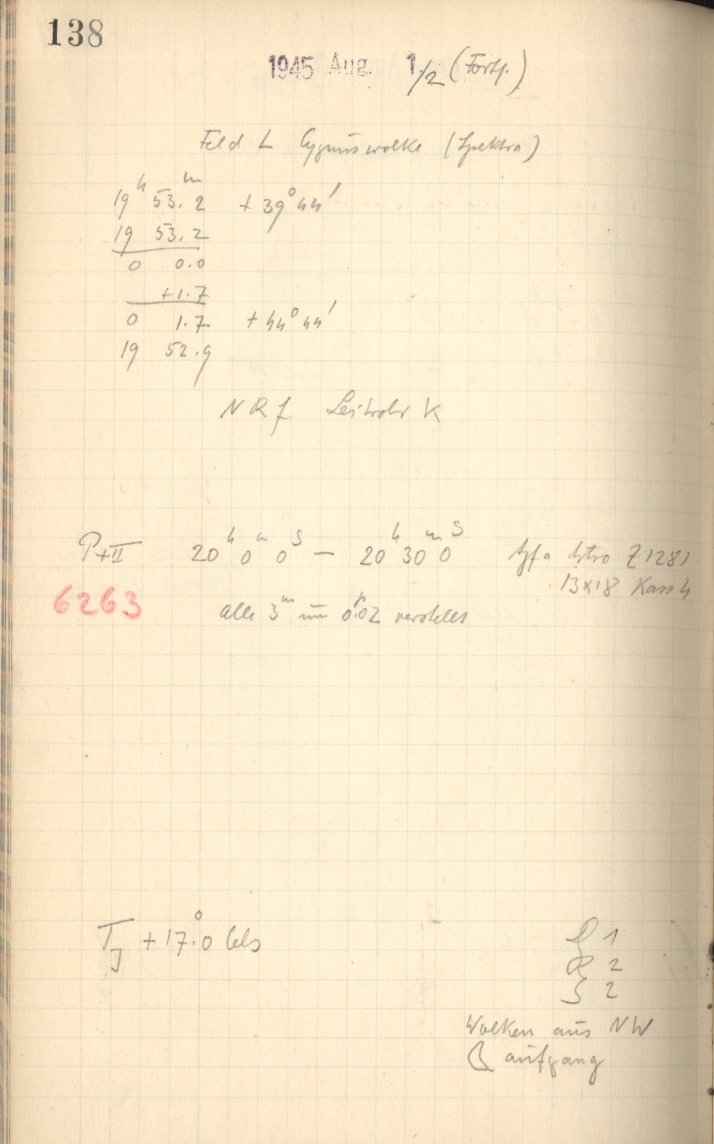 138
1945 Aug. 1./2 (Forts.)
Feld L Cygnuswolke (Spektra)
19ʰ 53.ᵐ2 + 39°44'
19 53.2
0 0.0
+1.7
0 1.7 + 44°44'
19 52.9
N R f Leitrohr K
P+II 20ʰ 0ᵐ 0ˢ — 20ʰ 30ᵐ 0ˢ Agfa Astro Z1281
13x18 Kass 4
6263 alle 3ᵐ um 0.02 verstellt
T_J + 17.°0 Cels
L 1
R 2
S 2
Wolken aus NW
☾ aufgang